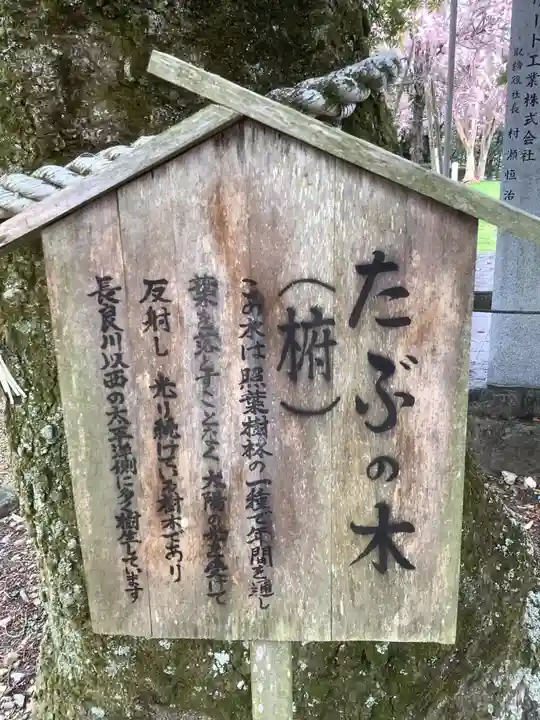 リト工業株式会社
取締役社長 村瀬恒治
たぶの木
（椨）
この木は照葉樹林の一種で年間を通し
葉を落とすことなく太陽の光を受けて
反射し 光り続けている樹木であり
長良川以西の太平洋側に多く樹生しています